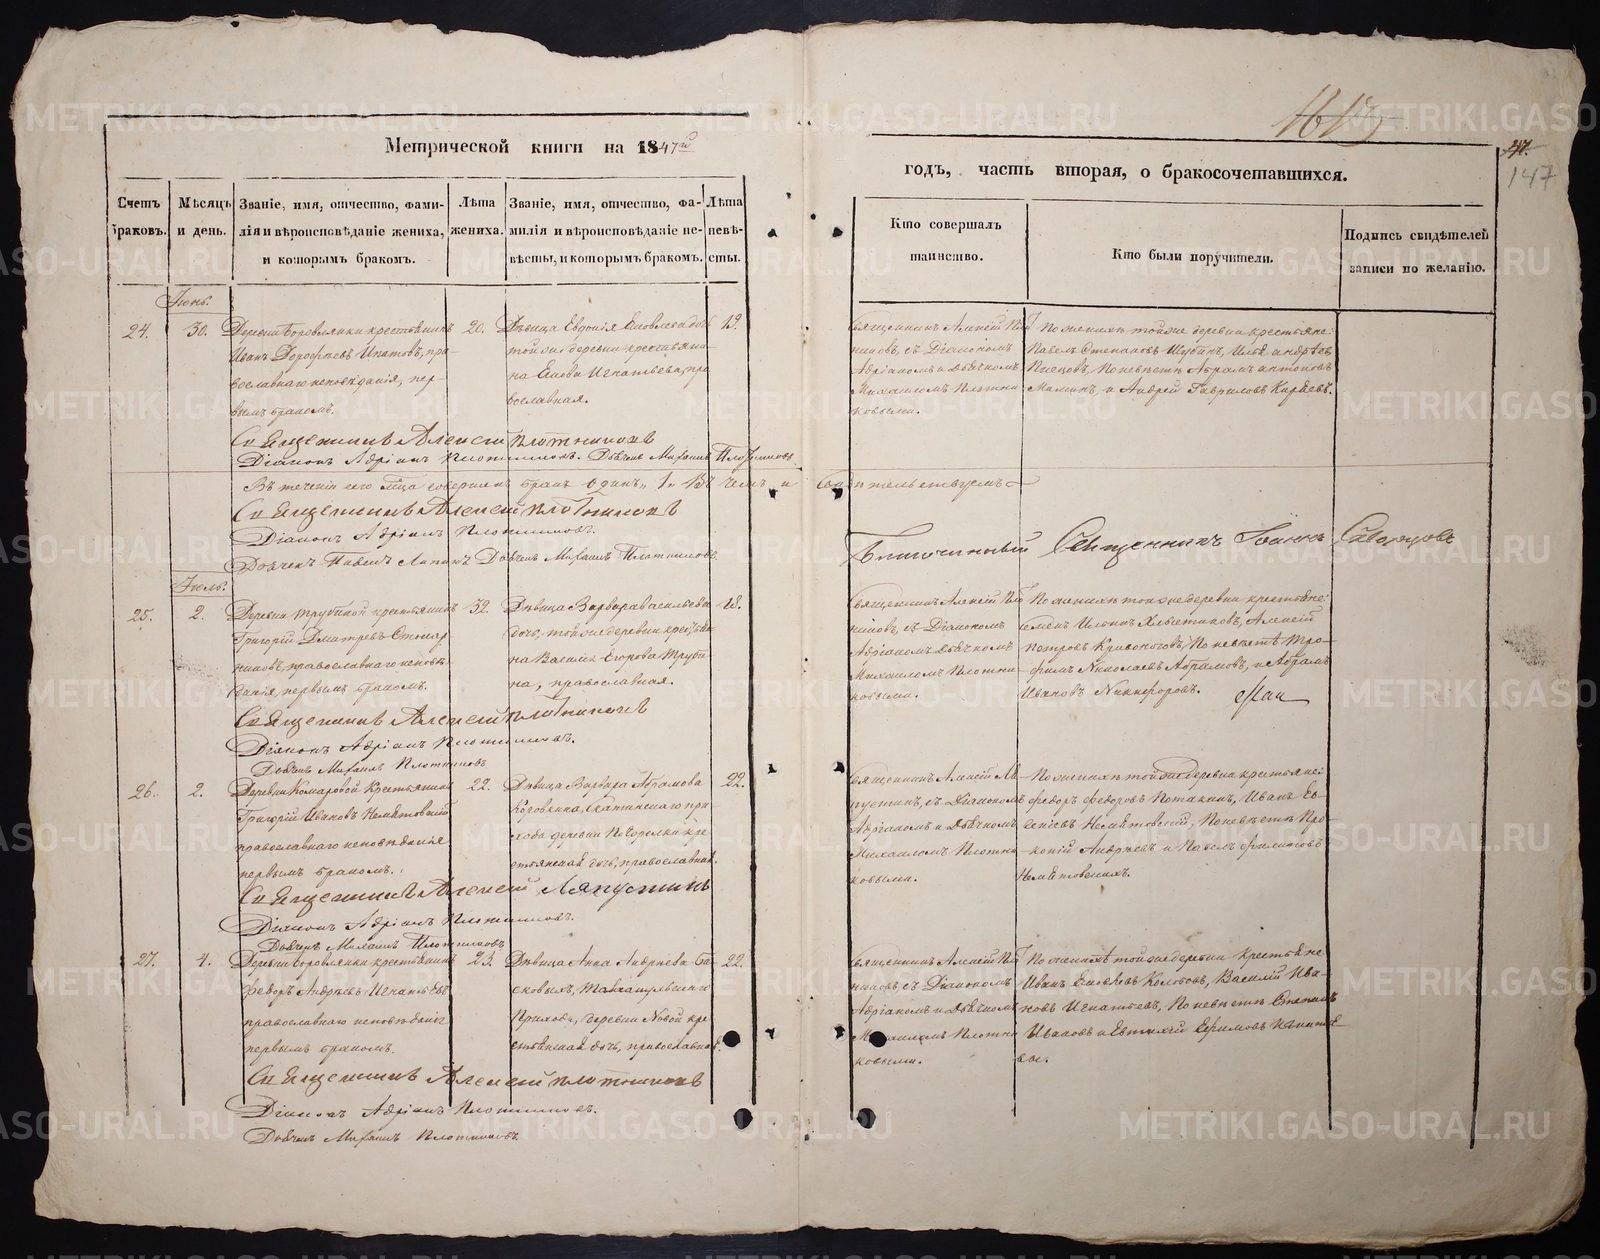 Метрической книги на 1847й
годъ, часть вторая, о бракосочетавшихся.
147
Счетъ браковъ.
Мѣсяцъ и день.
Званіе, имя, отчество, фами-
лія и вѣроисповѣданіе жениха,
и которымъ бракомъ.
Лѣта
жениха.
Званіе, имя, отчество, фа-
милія и вѣроисповѣданіе не-
вѣсты, и которымъ бракомъ.
Лѣта
невѣ-
сты.
Кто совершалъ
таинство.
Кто были поручители.
Подпись свидѣтелей
записи по желанію.
Іюнь.
24.
30.
Деревни Боровлянки крестьянинъ
Иванъ Дорофѣевъ Ипатовъ, пра-
вославнаго исповѣданія, пер-
вымъ бракомъ.
20.
Дѣвица Евдокія Яковлева дочь
той же деревни крестьяни-
на Якова Игнатьева, пра
вославная.
19.
Священникъ Алексій Пло
никовъ, съ Діакономъ
Адріаномъ и Дьячкомъ
Михаиломъ Плотни-
ковыми.
По женихѣ той же деревни крестьяне:
Павелъ Степановъ Шубинъ, Илья Андрѣевъ
Писцовъ, По невѣстѣ Абрамъ Антоновъ
Маминъ, и Андрей Гавриловъ Киряевъ.
Священникъ Алексій Плотниковъ
Діаконъ Адріанъ Плотниковъ. Дьячекъ Михаилъ Плотниковъ
Въ теченіи сего мѣсяца совершенъ бракъ одинъ „1„ Въ чемъ и свидѣтельствуемъ
Священникъ Алексій Плотниковъ
Діаконъ Адріанъ Плотниковъ.
Дьячекъ Михаилъ Плотниковъ
Благочинный Священникъ Іоаннъ
Іюль.
25.
2.
Деревни Трубиной крестьянинъ
Григорій Дмитревъ
никовъ, православнаго исповѣ-
данія, первымъ бракомъ.
32.
Дѣвица Варвара Васильева
дочь, той же деревни крестьяни-
на Василья Егорова Труби-
на, православная.
18.
Священникъ Алексій Пло
никовъ, съ Діакономъ
Адріаномъ и Дьячкомъ
Михаиломъ Плотни-
ковыми.
По женихѣ той же деревни крестьяне:
Семенъ Ильинъ Хвостиковъ, Алексій
Петровъ Кривоноговъ, По невѣстѣ Тро-
фимъ Николаевъ Абрамовъ, и Абрамъ
Ивановъ Никифоровъ.
Священникъ Алексій Плотниковъ
Діаконъ Адріанъ Плотниковъ.
Дьячекъ Михаилъ Плотниковъ
26.
2.
Деревни Комаровой Крестьянинъ
Григорій Ивановъ Немѣтовскій
православнаго исповѣданія
первымъ бракомъ.
22.
Дѣвица Варвара Абрамова
Кодовкина, Скатинскаго при-
хода деревни Погорелки кре-
стьянская дочь, православная.
22.
Священникъ Алексій Ля
пустинъ, съ Діакономъ
Адріаномъ и Дьячкомъ
Михаиломъ Плотни
ковыми.
По женихѣ той же деревни крестьяне:
Федоръ Федоровъ Потакинъ, Иванъ Ев-
сѣевъ Немѣтовскій, По невѣстѣ Про-
копій Андрѣевъ и Павелъ Филиповъ
Немѣтовскихъ.
Священникъ Алексій Ляпустинъ
Діаконъ Адріанъ Плотниковъ.
Дьячекъ Михаилъ Плотниковъ
27.
4.
Деревни Боровлянки крестьянинъ
Федоръ Андрѣевъ Игнатьевъ
православнаго исповѣданія
первымъ бракомъ.
23.
Дѣвица Анна Андрѣева Ба-
сковыхъ,
Прихода, деревни Новой кре-
стьянская дочь, православная.
22.
Священникъ Алексій Пло
никовъ, съ Діакономъ
Адріаномъ и Дьячкомъ
Михаиломъ Плотни
ковыми.
По женихѣ той же деревни крестьяне
Иванъ Яковлевъ Колобовъ, Василій Ива-
новъ Игнатьевъ, По невѣстѣ Степанъ
Ивановъ и Евтихій Ефимовъ Игнатье-
вы.
Священникъ Алексій Плотниковъ
Діаконъ Адріанъ Плотниковъ.
Дьячекъ Михаилъ Плотниковъ.
METRIKI.GASO-URAL.RU